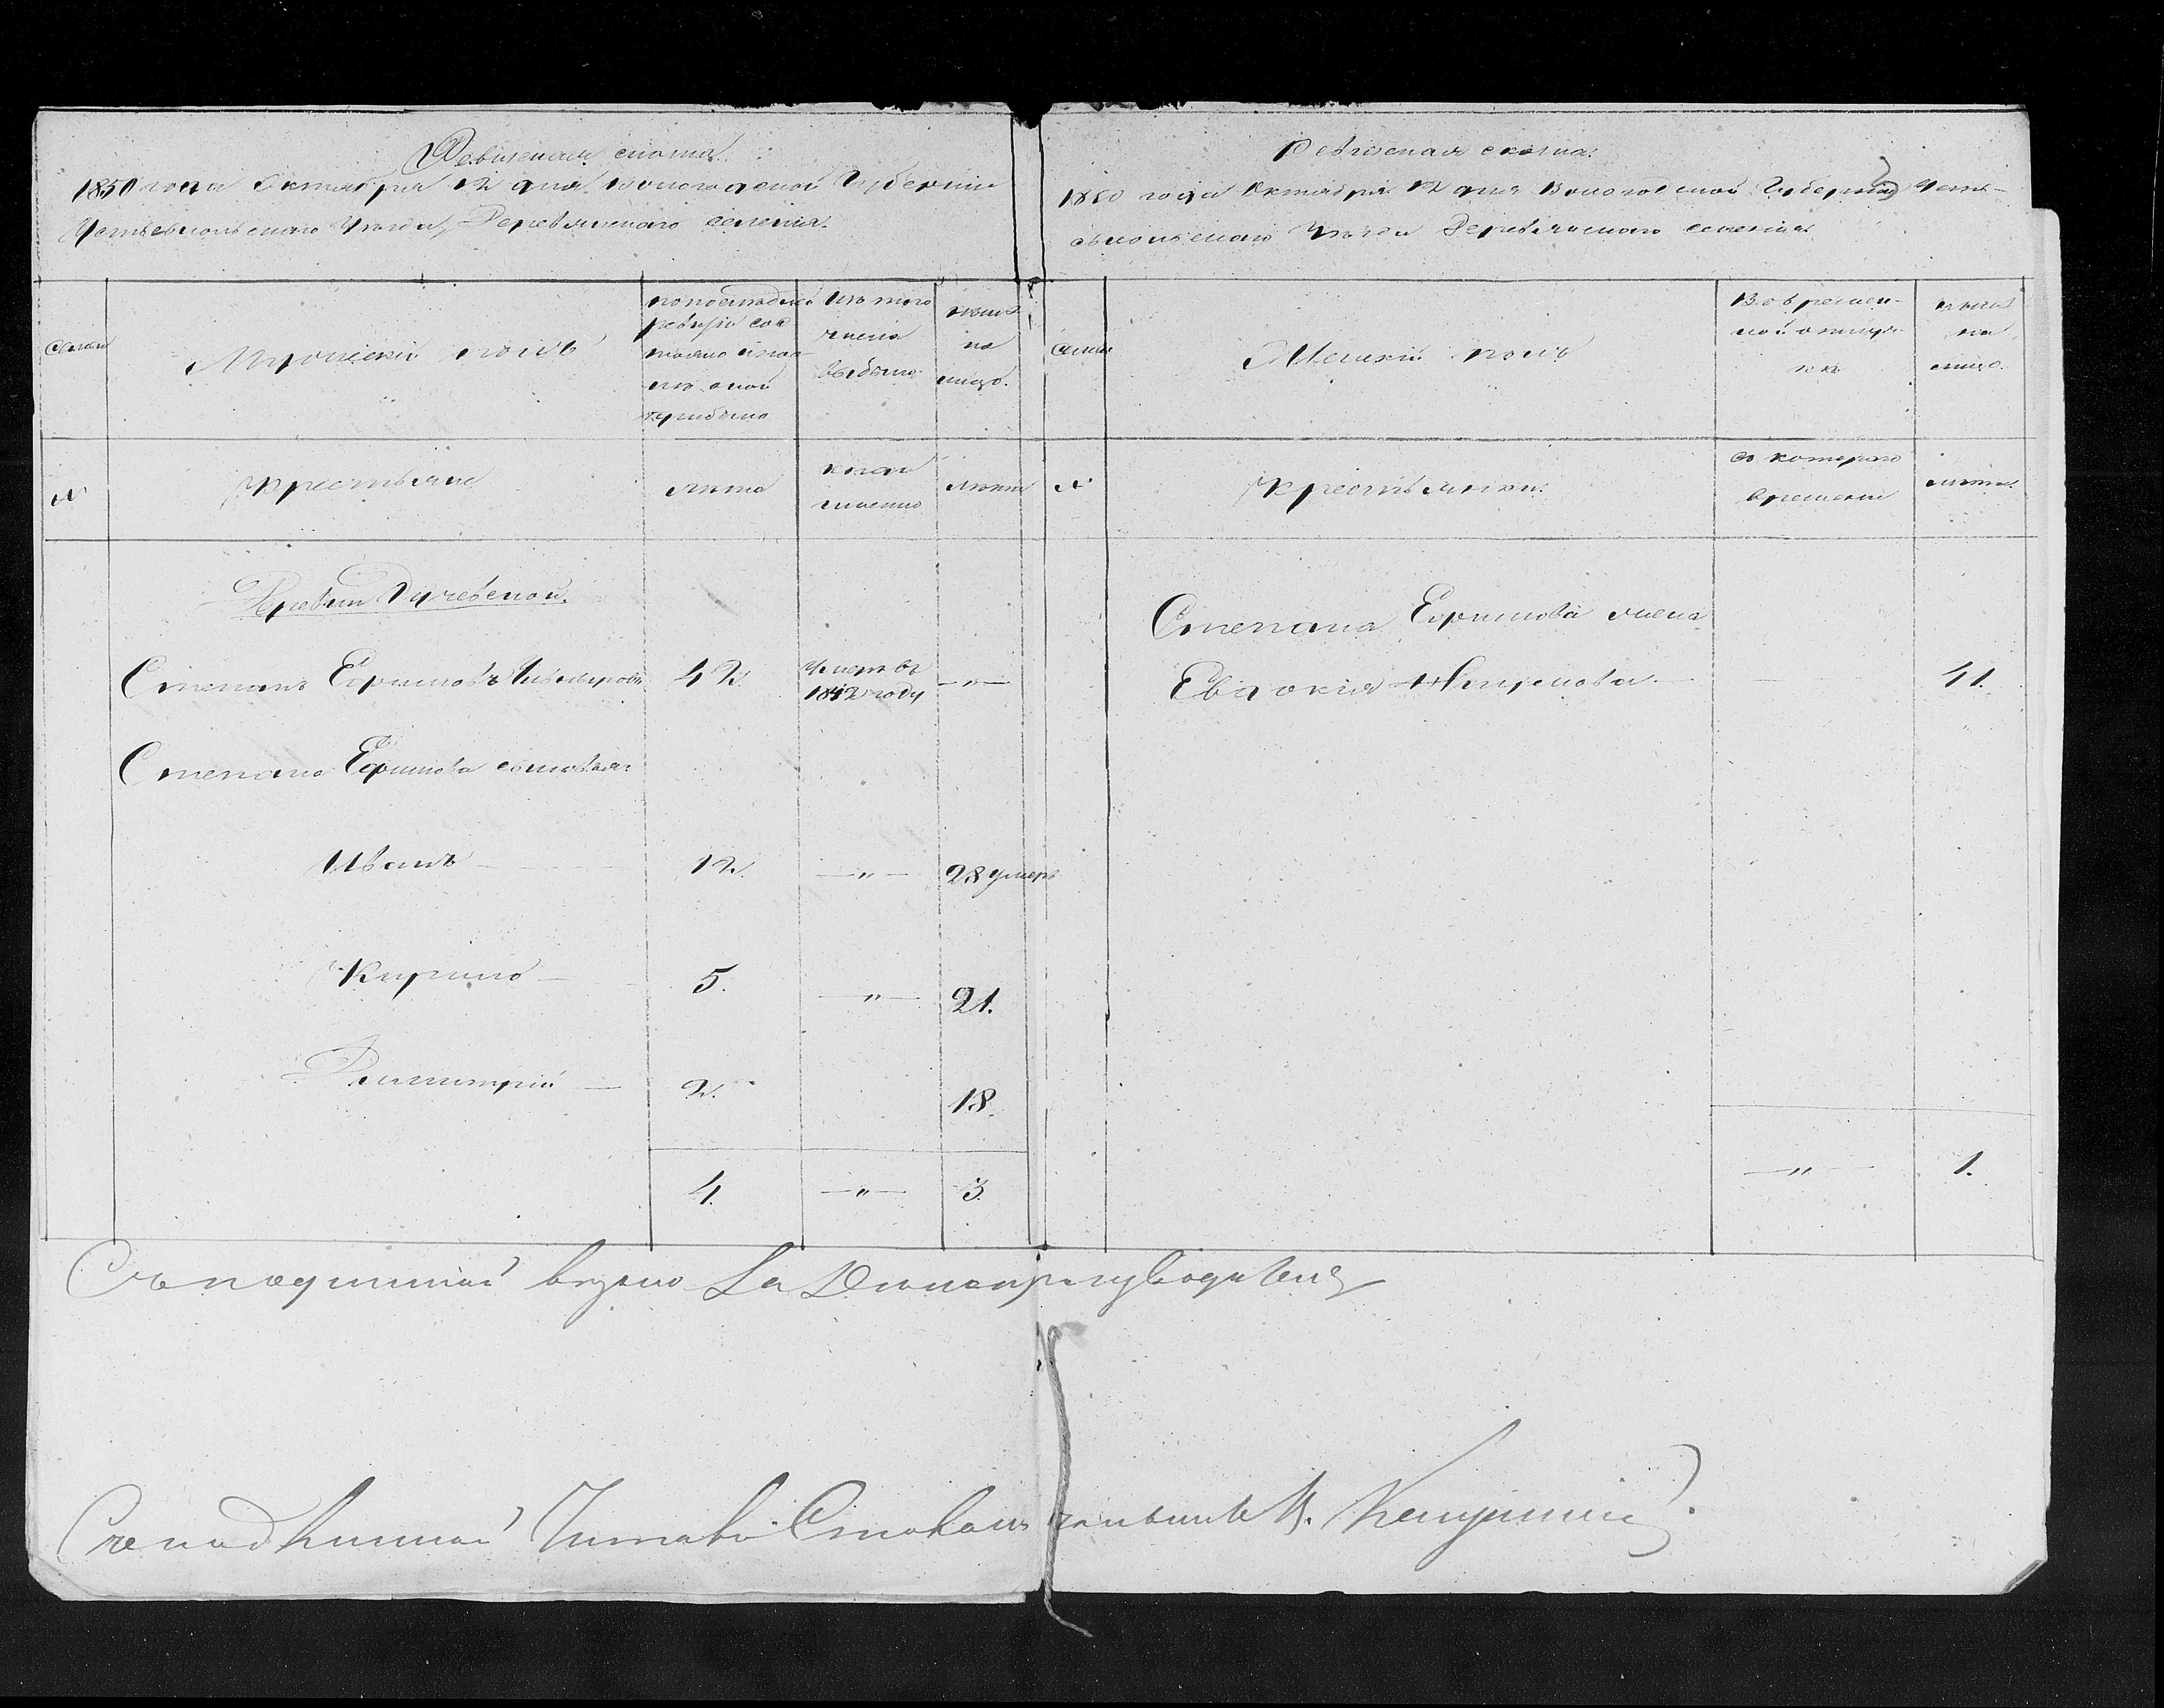 Ревизская сказка.
1850 года Октября 12 дня Вологодской Губернии
Устьсысольскаго Уезда, Деревянскаго селения.
Семьи
Мужеский полъ
по последней
ревизии сос
тояло и пос
ле оной
прибыло
Изъ того
числа
выбыло.
ныне
на
лицо.
№
Крестьяне
лета
когда
именно
лета
Деревни
Степанъ Ефимовъ
42.
Умеръ въ
1842 году
—"—
Степана Ефимова сыновья:
Иванъ
12.
—"—
28 умеръ
Кирило
5.
—"—
21.
Димитрий
2.
18.
4.
—"—
3.
Ревизская сказка.
1850 года Октября 12 дня Вологодской Губернии Усть-
сысольскаго Уезда Деревянскаго селения
Семьи
Женский полъ
Во времен-
ной отлуч-
ке
ныне
на
лицо.
№
Крестьянки.
съ котораго
времени
лета.
Степана Ефимова жена
Евдокия
41.
—"—
1.
Съ подлинной верно
Съ подлинной Читалъ